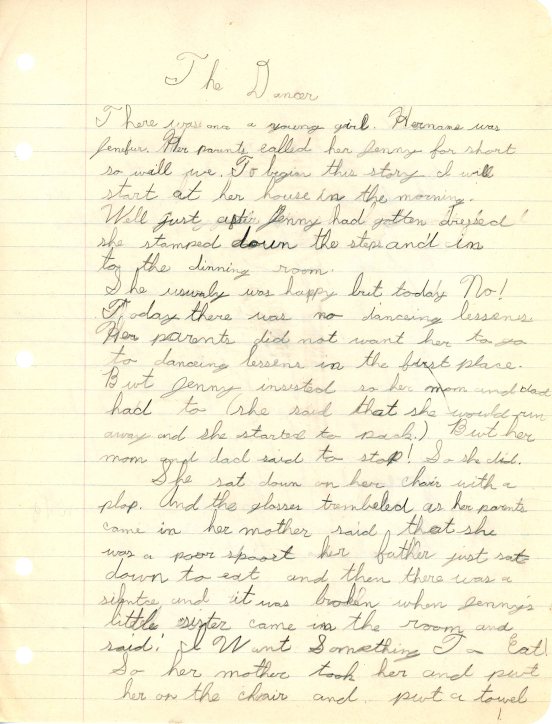 The Dancer
There was onc a young girl. Her name was
Jenefur. Her parents called her Jenny for short
so will we. To begin this story I will
start at her house in the morning.
Well just after Jenny had gotten dressed
she stamped down the steps and in
to the dinning room.
She usualy was happy but today No!
Today there was no danceing lessens.
Her parents did not want her to go
to danceing lessens in the first place.
But Jenny insisted so her mom and dad
had to (she said that she would run
away and she started to pack.) But her
mom and dad said to stop! So she did.
She sat down on her chair with a
plop. And the glasses trembeled as her parents
came in her mother said that she
was a poor spoort her father just sat
down to eat and then there was a
silentce and it was broken when Jenny's
little sister came in the room and
said! I Want Something To Eat!
So her mother took her and put
her on the chair and put a towel